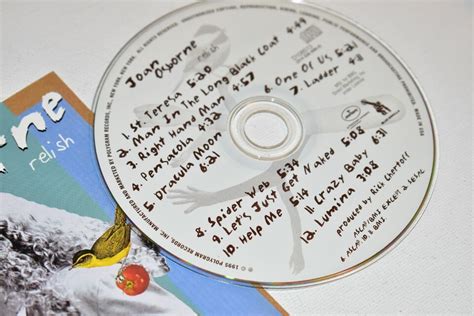 Joan
Osborne
relish
1. St. Teresa 5:20
2. Man In The Long Black Coat 4:49
3. Right Hand Man 4:57
4. Pensacola 4:32
5. Dracula Moon
6:21
6. One Of Us 5:21
7. Ladder 4:8
8. Spider Web 5:34
9. Let's Just Get Naked 5:08
10. Help Me 5:14
11. Crazy Baby 6:31
12. Lumina 3:08
produced by Rick Chertoff
MANUFACTURED AND MARKETED BY POLYGRAM RECORDS, INC., NEW YORK, NEW YORK. ALL RIGHTS RESERVED. UNAUTHORIZED
MADE IN USA
© 1995 POLYGRAM RECORDS, INC.
ne
relish